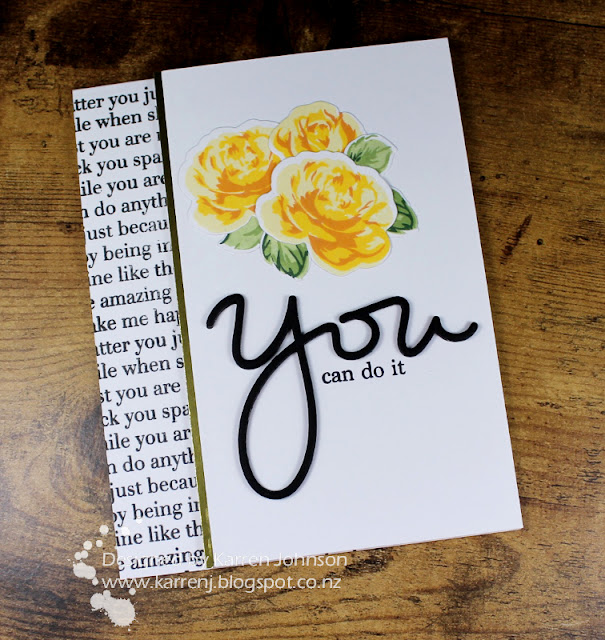 tter you ju
le when s
t you are
ck you spa
ile you are
n do anyth
just becau
by being in
ine like th
e amazing
ake me hap
atter you ju
ile when s
st you are
ck you spa
hile you ar
n do anyth
just becau
by being in
ine like th
e amazing
you
can do it
Designed by Karren Johnson
www.karrenj.blogspot.co.nz